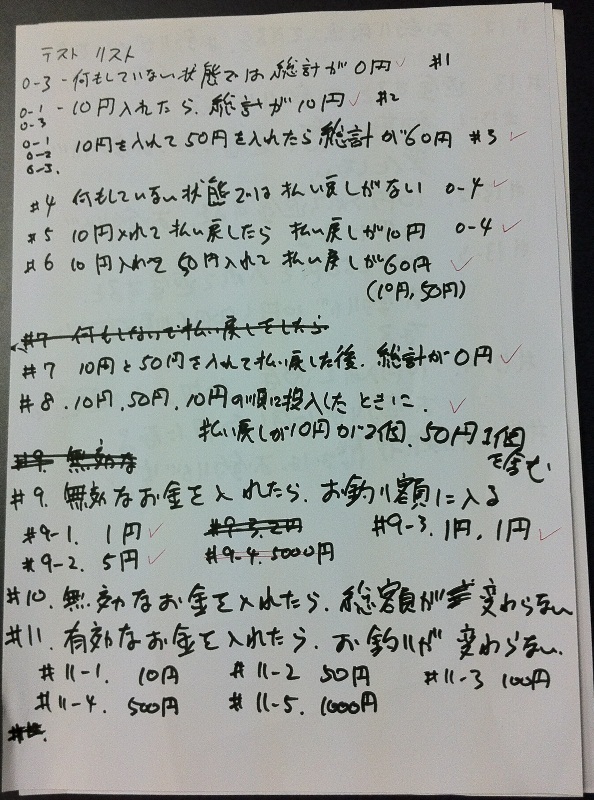 テスト リスト
0-3 - 何もしていない状態では総計が0円 ✓ #1
0-1 - 10円入れたら、総計が10円 ✓ #2
0-3
0-1 10円を入れて50円を入れたら総計が60円 #3 ✓
0-2
0-3.
#4 何もしていない状態では払い戻しがない 0-4 ✓
#5 10円入れて払い戻したら 払い戻しが10円 0-4 ✓
#6 10円入れて50円入れて 払い戻しが60円 ✓
(10円,50円)
#7 何もしないで払い戻しをしたら
#7 10円と50円を入れて払い戻した後、総計が0円 ✓
#8. 10円,50円,10円の順に投入したときに、 ✓
払い戻しが10円が2個、50円1個
を含む
#9. 無効な
#9. 無効なお金を入れたら、お釣り額に入る
#9-1. 1円 ✓ #9-3. 2円 #9-3. 1円,1円 ✓
#9-2. 5円 ✓ #9-4. 5000円
#10. 無効なお金を入れたら、総額が変わらない
#11. 有効なお金を入れたら、お釣りが変わらない、
#11-1. 10円 #11-2 50円 #11-3 100円
#11-4. 500円 #11-5. 1000円